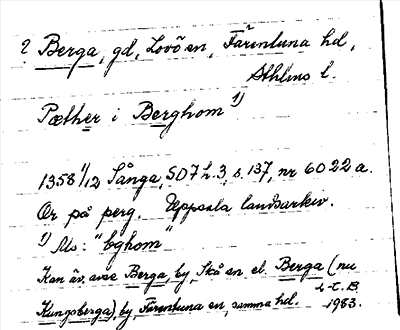 ? Berga, gd, Lovö sn, Färentuna hd,
Sthlms l.
Pæther i Berghom 1)
1358 1/12 Sånga, SD 7 h. 3, s. 137, nr 6022 a.
Or på perg. Uppsala landsarkiv.
1) Ms: "bghom"
Kan äv. avse Berga, by, Skå sn el. Berga (nu
Kungsberga), by, Färentuna sn, samma hd.
1983.